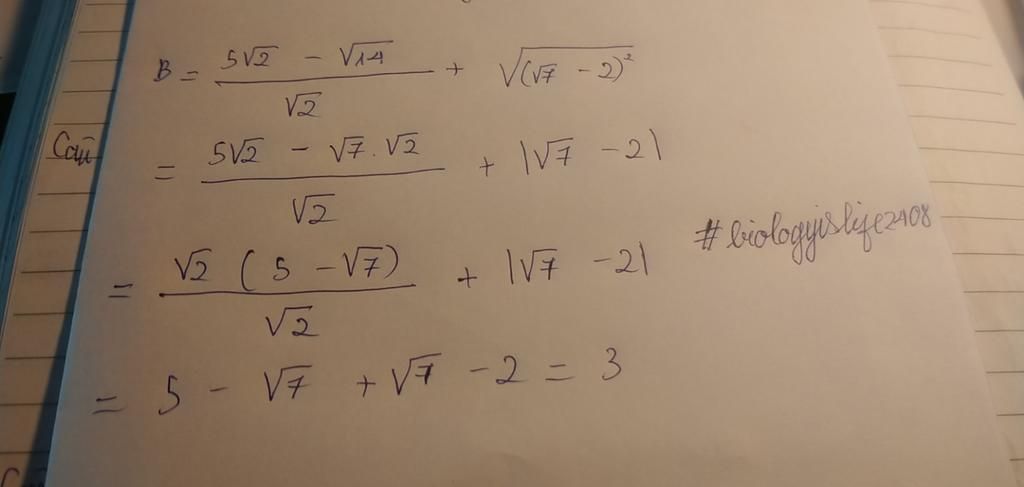 B = \frac{5\sqrt{2} - \sqrt{14}}{\sqrt{2}} + \sqrt{(\sqrt{7} - 2)^2}
= \frac{5\sqrt{2} - \sqrt{7}.\sqrt{2}}{\sqrt{2}} + |\sqrt{7} - 2|
#biologyislife2408
= \frac{\sqrt{2} (5 - \sqrt{7})}{\sqrt{2}} + |\sqrt{7} - 2|
= 5 - \sqrt{7} + \sqrt{7} - 2 = 3